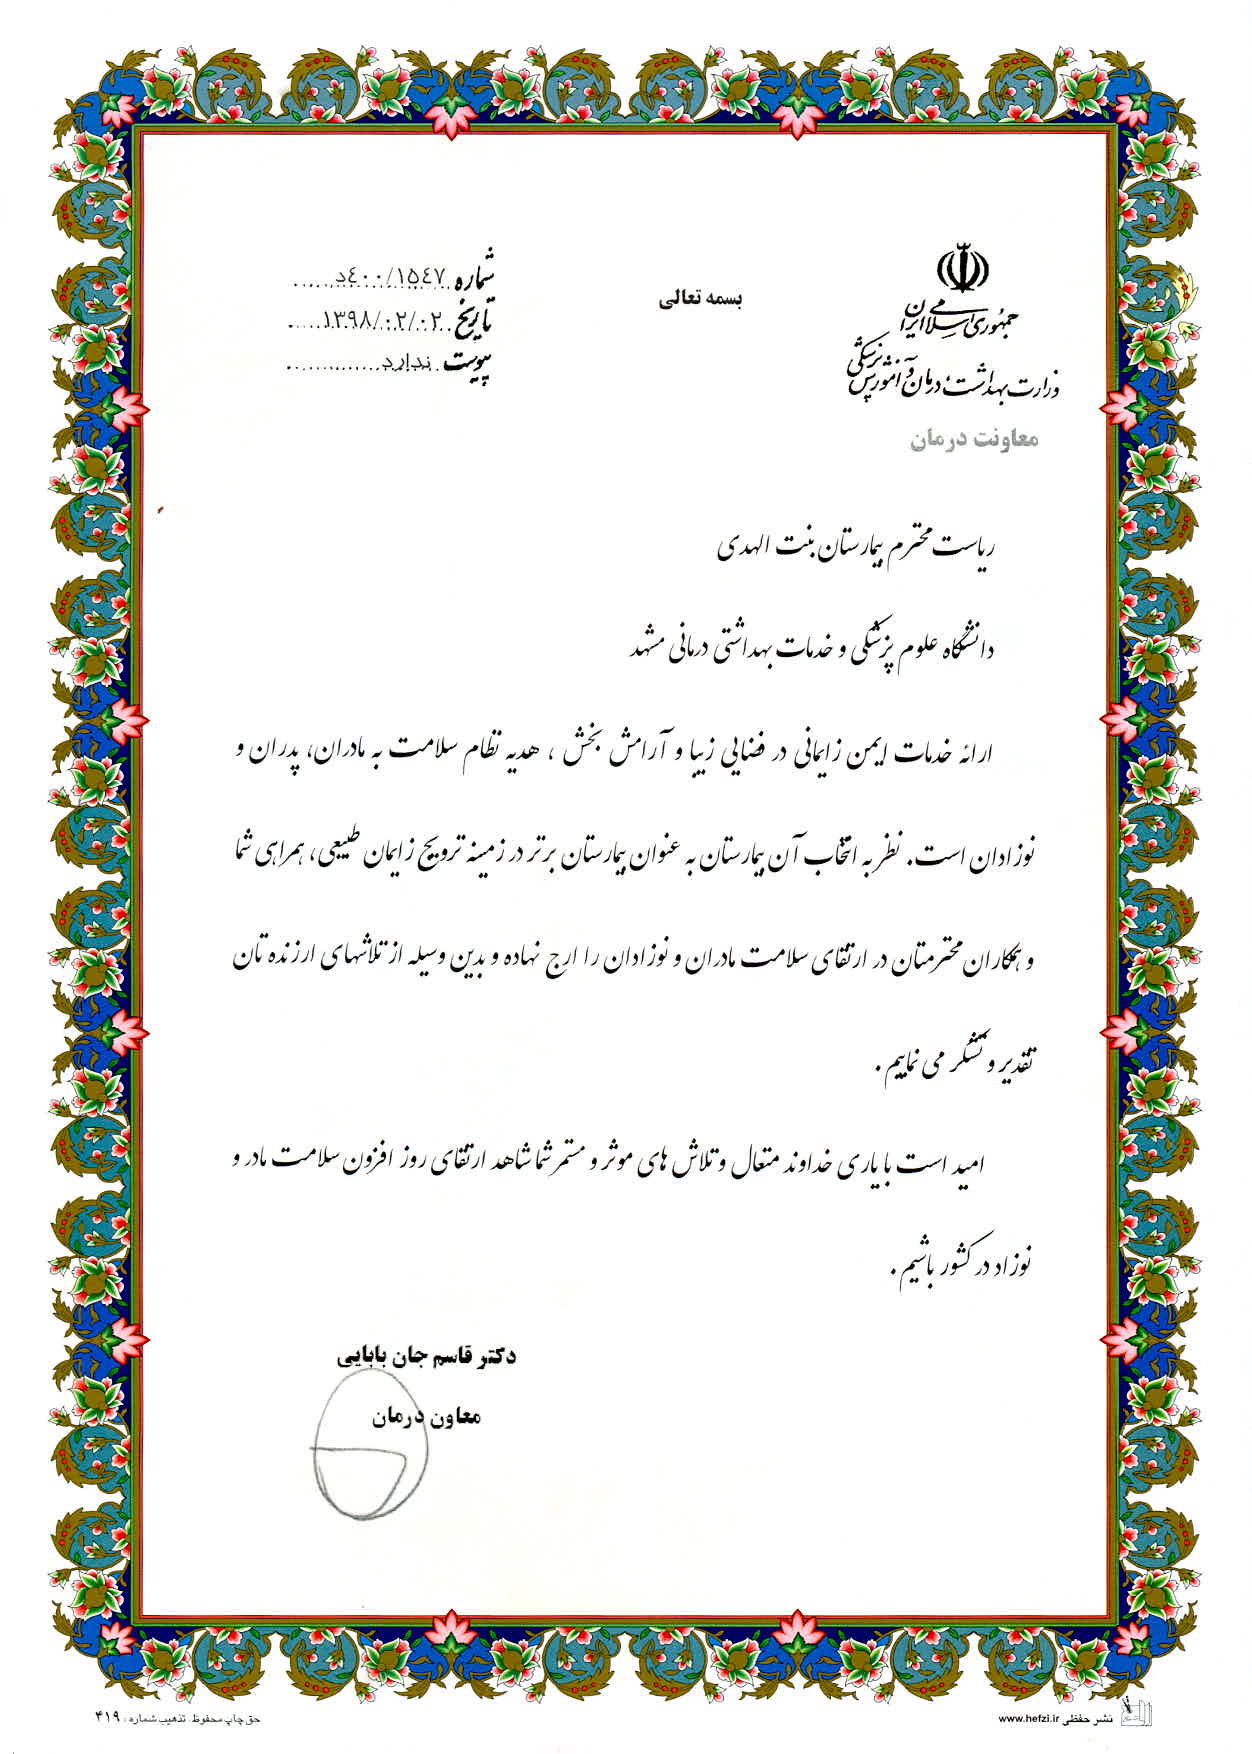 بسمه تعالی
جمهوری اسلامی ایران
وزارت بهداشت، درمان و آموزش پزشکی
معاونت درمان
شماره ۴۰۰/۱۵۴۷د
تاریخ ۱۳۹۸/۰۲/۰۲
پیوست ندارد
ریاست محترم بیمارستان بنت الهدی
دانشگاه علوم پزشکی و خدمات بهداشتی درمانی مشهد
ارائه خدمات ایمن زایمانی در فضایی زیبا و آرامش بخش ، هدیه نظام سلامت به مادران، پدران و
نوزادان است. نظر به انتخاب آن بیمارستان به عنوان بیمارستان برتر در زمینه ترویج زایمان طبیعی، همراهی شما
و همکاران محترمتان در ارتقای سلامت مادران و نوزادان را ارج نهاده و بدین وسیله از تلاشهای ارزنده تان
تقدیر و تشکر می نماییم .
امید است با یاری خداوند متعال و تلاش های موثر و مستمر شما شاهد ارتقای روز افزون سلامت مادر و
نوزاد در کشور باشیم .
دکتر قاسم جان بابایی
معاون درمان
نشر حفظی www.hefzi.ir
حق چاپ محفوظ. تذهیب شماره : ۴۱۹